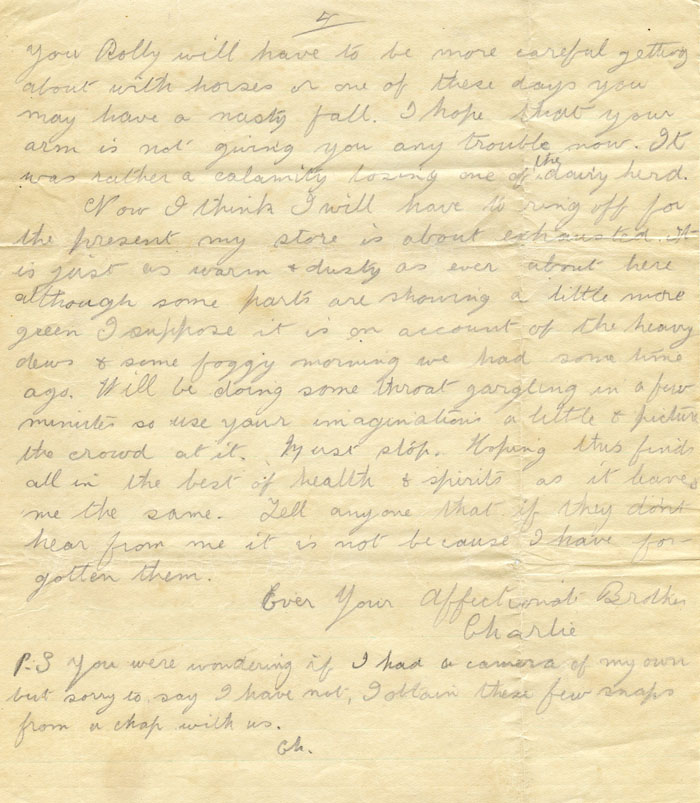 4
You Rolly will have to be more careful getting
about with horses or one of these days you
may have a nasty fall. I hope that your
arm is not giving you any trouble now. It
was rather a calamity losing one of the dairy herd.
Now I think I will have to ring off for
the present my store is about exhausted. It
is just as warm & dusty as ever about here
although some parts are showing a little more
green I suppose it is on account of the heavy
dews & some foggy morning we had some time
ago. Will be doing some throat gargling in a few
minutes so use your imaginations a little & picture
the crowd at it. Must stop. Hoping this finds
all in the best of health & spirits as it leaves
me the same. Tell anyone that if they don't
hear from me it is not because I have for-
gotten them.
Ever Your Affectionate Brother
Charlie
P.S You were wondering if I had a camera of my own
but sorry to say I have not, I obtain these few snaps
from a chap with us.
Ch.